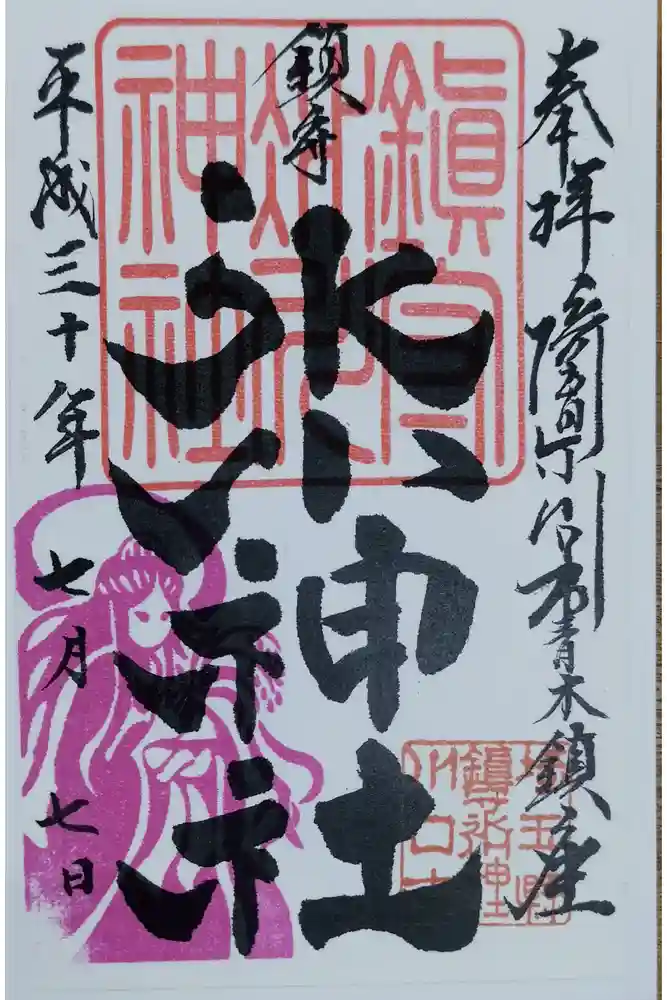 奉拝 埼玉県川口市青木鎮座
鎮守
氷川神社
平成三十年 七月 七日
鎮守
氷川
神社
埼玉縣
川口市